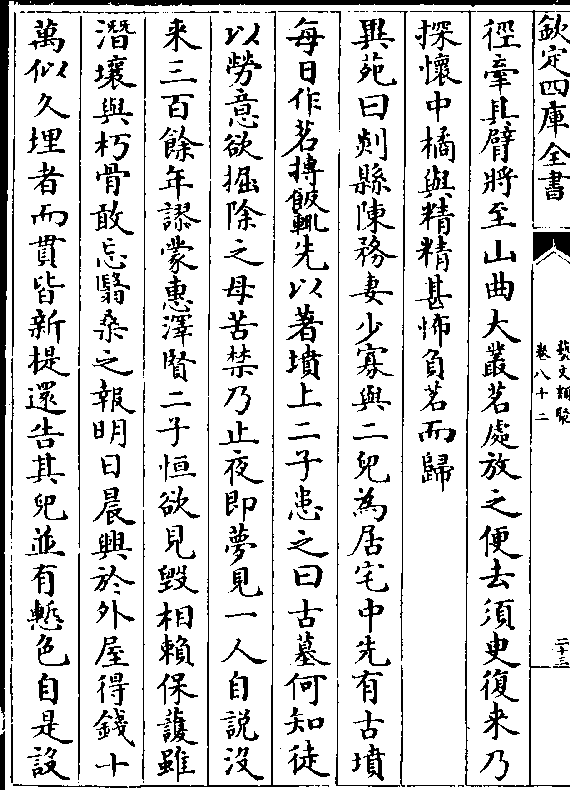 欽定四庫全書
藝文類聚
卷八十二
二十三
徑牽其臂將至山曲大叢茗處放之便去須臾復來乃
探懷中橘與精精甚怖負茗而歸
異苑曰剡縣陳務妻少寡與二兒為居宅中先有古墳
每日作茗摶飯輒先以著墳上二子患之曰古墓何知徒
以勞意欲掘除之母苦禁乃止夜即夢見一人自說沒
来三百餘年謬蒙惠澤賢二子恒欲見毀相賴保護雖
潛壤與朽骨敢忘翳桑之報明日晨興於外屋得錢十
萬似久埋者而貫皆新提還告其兒並有慙色自是設